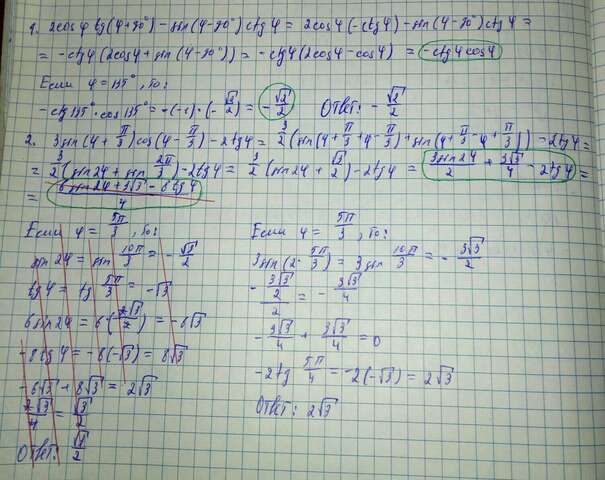 1. 2cosφ tg(φ+90°) - sin(φ-90°)ctgφ = 2cosφ(-ctgφ) - sin(φ-90°)ctgφ =
= -ctgφ(2cosφ + sin(φ-90°)) = -ctgφ(2cosφ - cosφ) = -ctgφ cosφ
Если φ = 135°, то:
-ctg135°·cos135° = -(-1)·(-√2/2) = -√2/2 Ответ: -√2/2
2. 3sin(φ+π/3)cos(φ-π/3) - 2tgφ = 3/2(sin(φ+π/3+φ-π/3) + sin(φ+π/3-φ+π/3)) - 2tgφ =
= 3/2(sin2φ + sin 2π/3) - 2tgφ = 3/2(sin2φ + √3/2) - 2tgφ = 3sin2φ/2 + 3√3/4 - 2tgφ =
= 6sin2φ+3√3-8tgφ/4
Если φ = 5π/3, то:
sin2φ = sin 10π/3 = -√3/2
tgφ = tg 5π/3 = -√3
-8tgφ = -8(-√3) = 8√3
-6√3 + 8√3 = 2√3
2√3/4 = √3/2
Ответ: √3/2
Если φ = 5π/3, то:
3sin(2·5π/3) = 3sin 10π/3 = -3√3/2
-3√3/4 + 3√3/4 = 0
-2tg 5π/4 = -2(-√3) = 2√3
Ответ: 2√3